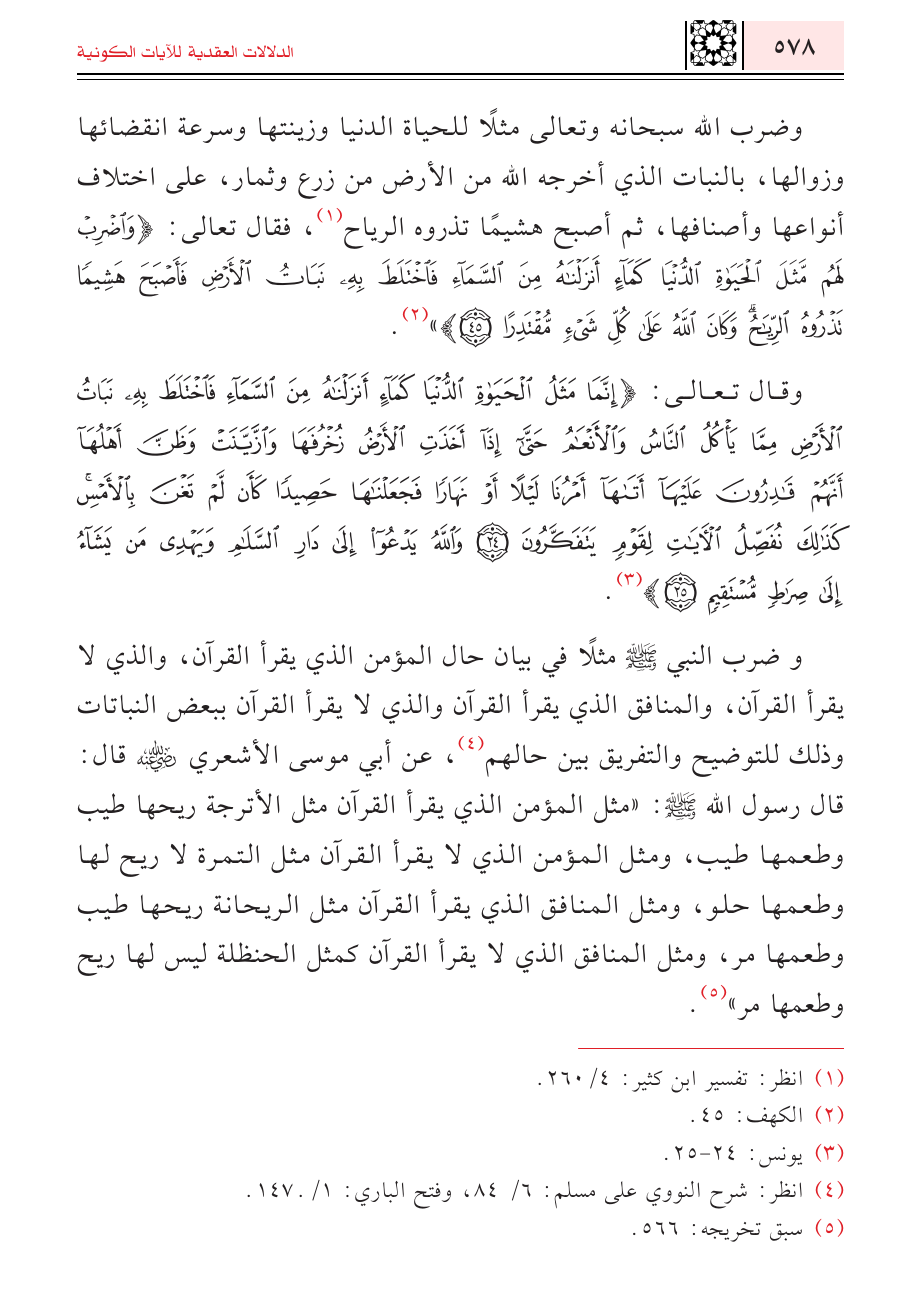 ٥٧٨
الدلالات العقدية للآيات الكونية
وضرب الله سبحانه وتعالى مثلًا للحياة الدنيا وزينتها وسرعة انقضائها
وزوالها، بالنبات الذي أخرجه الله من الأرض من زرع وثمار، على اختلاف
أنواعها وأصنافها، ثم أصبح هشيمًا تذروه الرياح(١)، فقال تعالى: ﴿وَٱضْرِبْ
لَهُم مَّثَلَ ٱلْحَيَوٰةِ ٱلدُّنْيَا كَمَآءٍ أَنزَلْنَٰهُ مِنَ ٱلسَّمَآءِ فَٱخْتَلَطَ بِهِۦ نَبَاتُ ٱلْأَرْضِ فَأَصْبَحَ هَشِيمًا
تَذْرُوهُ ٱلرِّيَٰحُ ۗ وَكَانَ ٱللَّهُ عَلَىٰ كُلِّ شَىْءٍ مُّقْتَدِرًا ٤٥﴾»(٢).
وقـال تـعـالـى: ﴿إِنَّمَا مَثَلُ ٱلْحَيَوٰةِ ٱلدُّنْيَا كَمَآءٍ أَنزَلْنَٰهُ مِنَ ٱلسَّمَآءِ فَٱخْتَلَطَ بِهِۦ نَبَاتُ
ٱلْأَرْضِ مِمَّا يَأْكُلُ ٱلنَّاسُ وَٱلْأَنْعَٰمُ حَتَّىٰٓ إِذَآ أَخَذَتِ ٱلْأَرْضُ زُخْرُفَهَا وَٱزَّيَّنَتْ وَظَنَّ أَهْلُهَآ
أَنَّهُمْ قَٰدِرُونَ عَلَيْهَآ أَتَىٰهَآ أَمْرُنَا لَيْلًا أَوْ نَهَارًا فَجَعَلْنَٰهَا حَصِيدًا كَأَن لَّمْ تَغْنَ بِٱلْأَمْسِ ۚ
كَذَٰلِكَ نُفَصِّلُ ٱلْأَيَٰتِ لِقَوْمٍ يَتَفَكَّرُونَ ٢٤ وَٱللَّهُ يَدْعُوٓا۟ إِلَىٰ دَارِ ٱلسَّلَٰمِ وَيَهْدِى مَن يَشَآءُ
إِلَىٰ صِرَٰطٍ مُّسْتَقِيمٍ ٢٥﴾(٣).
و ضرب النبي ﷺ مثلًا في بيان حال المؤمن الذي يقرأ القرآن، والذي لا
يقرأ القرآن، والمنافق الذي يقرأ القرآن والذي لا يقرأ القرآن ببعض النباتات
وذلك للتوضيح والتفريق بين حالهم(٤)، عن أبي موسى الأشعري رضي الله عنه قال:
قال رسول الله ﷺ: «مثل المؤمن الذي يقرأ القرآن مثل الأترجة ريحها طيب
وطعمها طيب، ومثل المؤمن الذي لا يقرأ القرآن مثل التمرة لا ريح لها
وطعمها حلو، ومثل المنافق الذي يقرأ القرآن مثل الريحانة ريحها طيب
وطعمها مر، ومثل المنافق الذي لا يقرأ القرآن كمثل الحنظلة ليس لها ريح
وطعمها مر»(٥).
(١) انظر: تفسير ابن كثير: ٤/ ٢٦٠.
(٢) الكهف: ٤٥.
(٣) يونس: ٢٤-٢٥.
(٤) انظر: شرح النووي على مسلم: ٦/ ٨٤، وفتح الباري: ١/ ١٤٧٠.
(٥) سبق تخريجه: ٥٦٦.